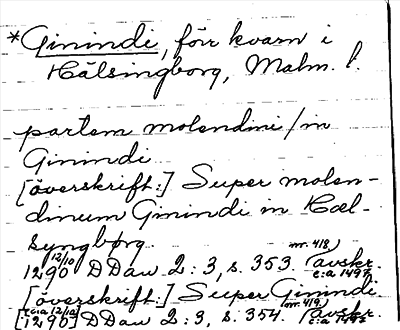 *Ginindi, förr kvarn i
Hälsingborg, Malm. l.
partem molendini / in
Ginindi
[överskrift:] Super molen-
dinum Ginindi in Hæl-
syngbørg
12/10 1290 DDan 2:3, s. 353. nr. 418, avskr. c:a 1497
[överskrift:] Super Ginindi
[c:a 12/10 1290] DDan 2:3, s. 354. nr. 419, avskr. c:a 1495